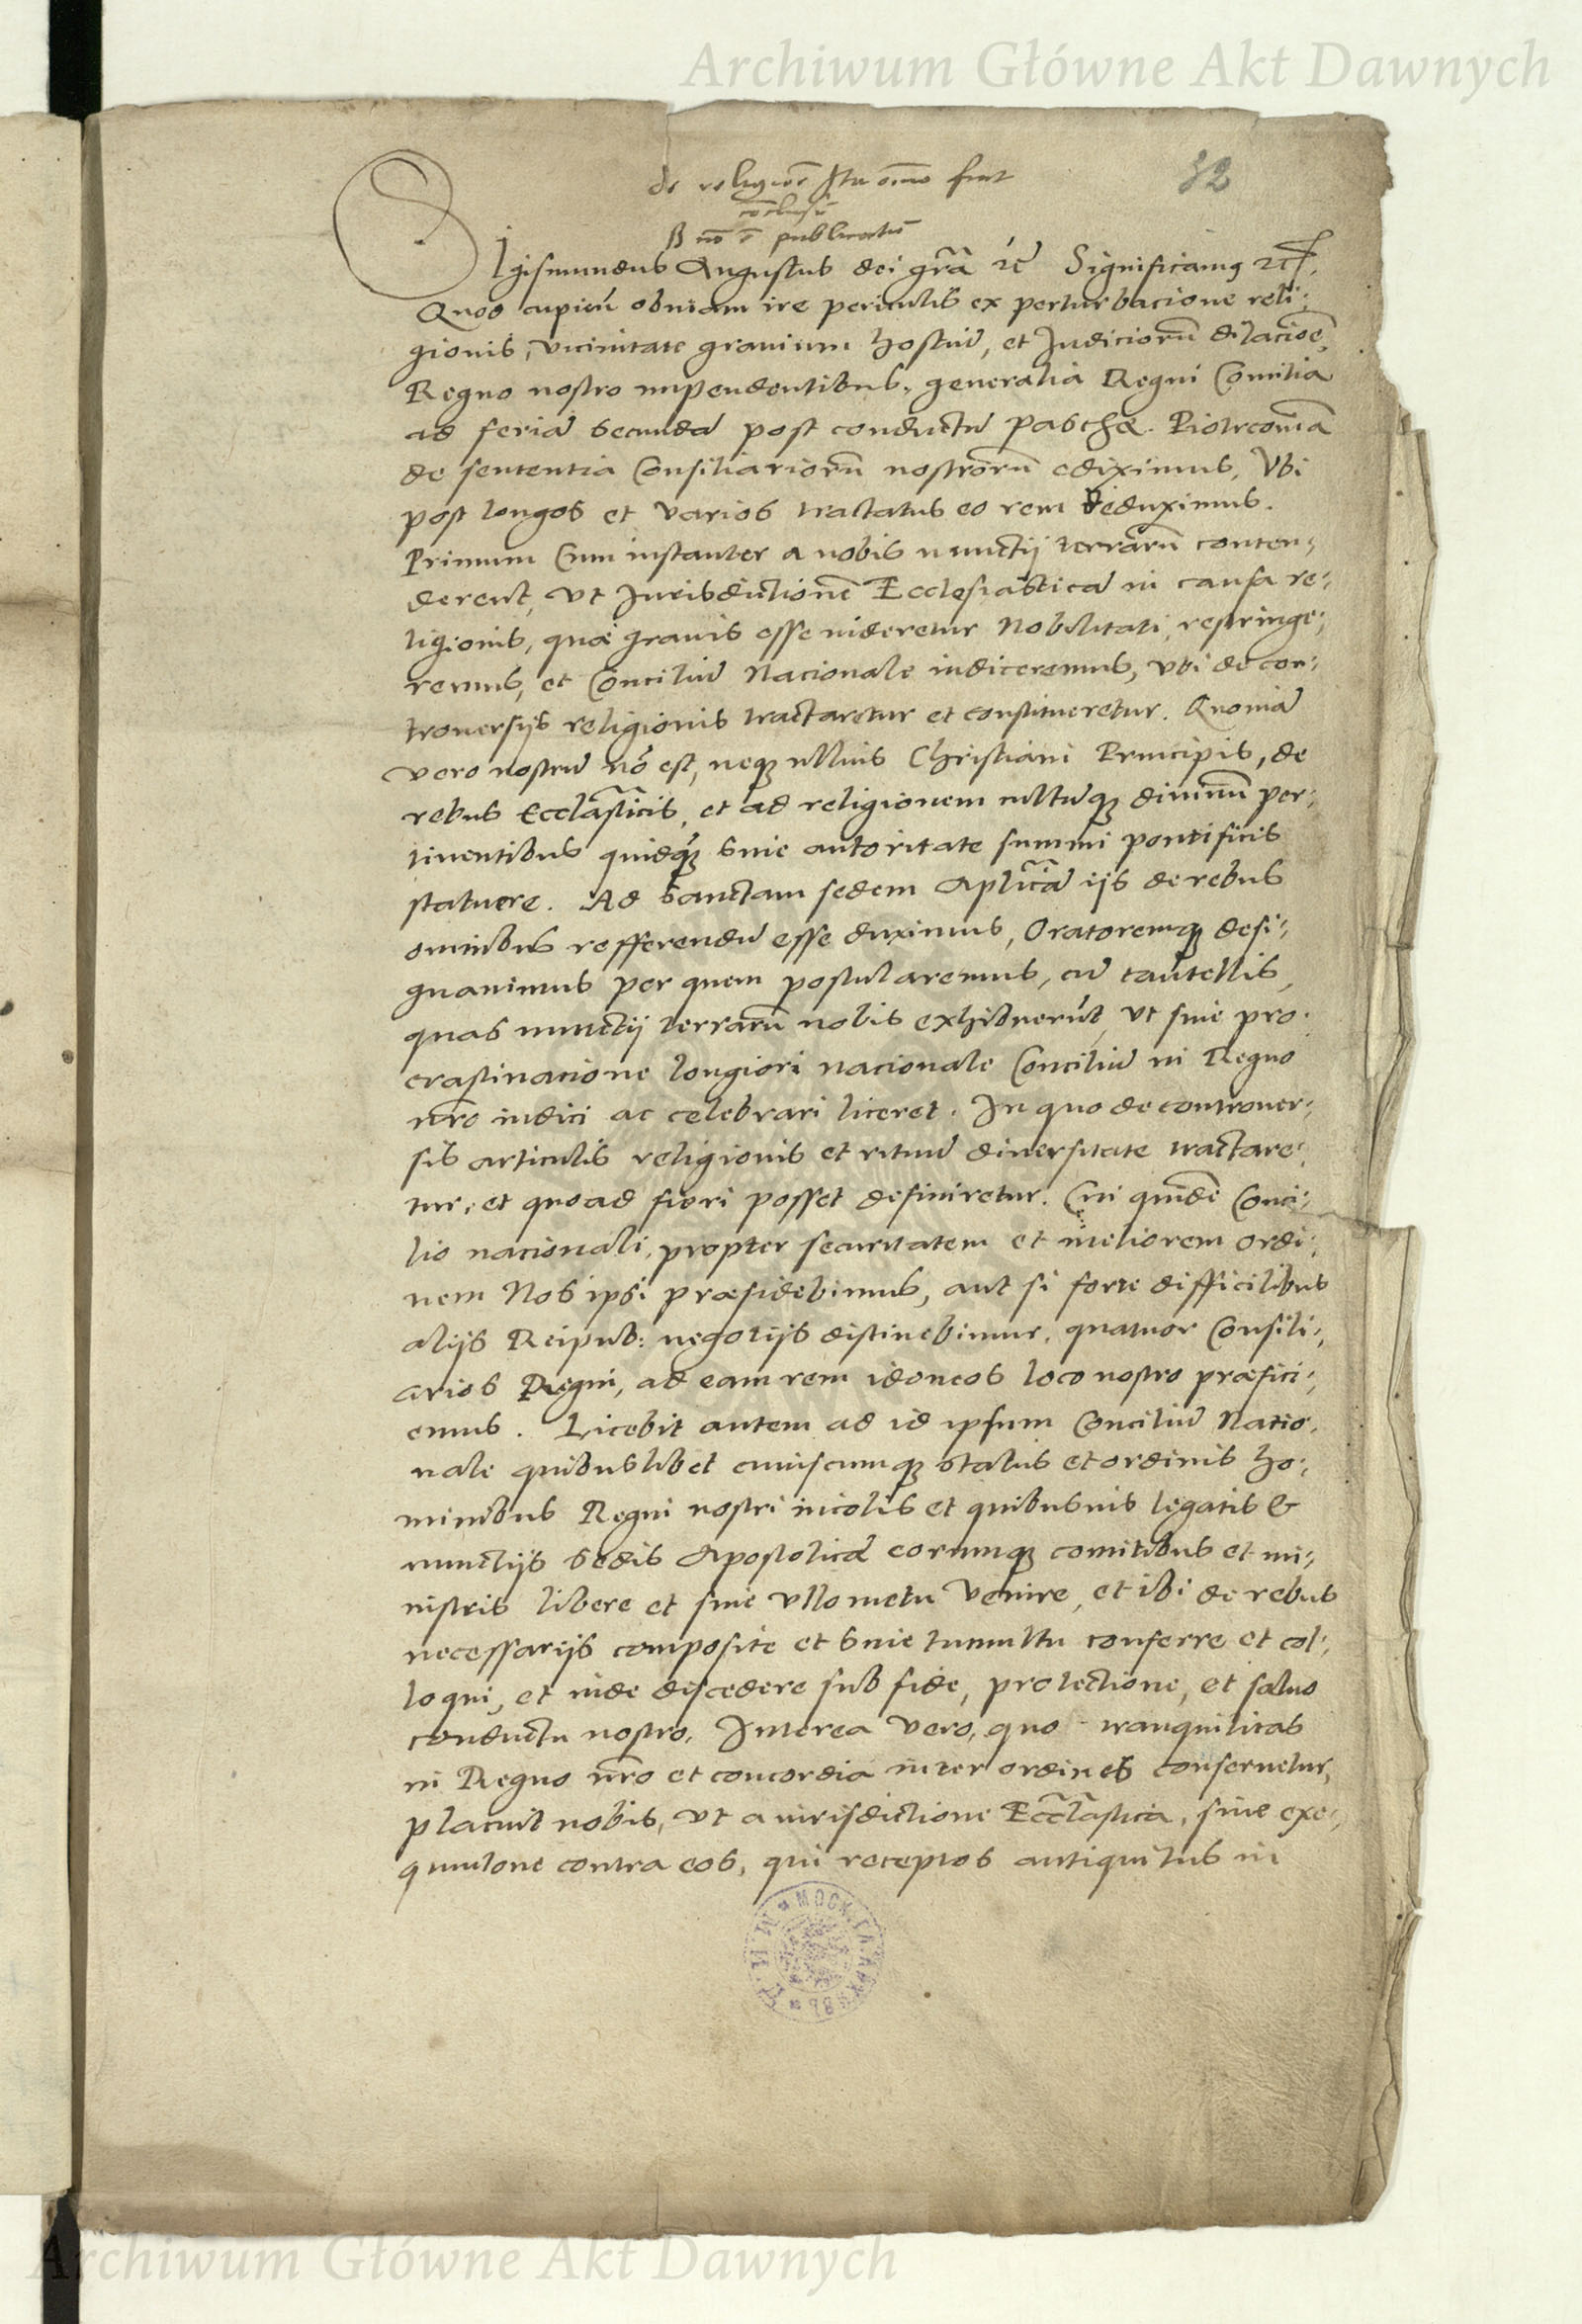 Archiwum Główne Akt Dawnych
32
de religione Ita omnino fuit
conclusū
B nō ē publicatū
Sigismundus Augustus dei grã ꝛc Significamus ꝛc.
Quod cupieñ obuiam ire periculis ex perturbacione reli:
gionis, vicinitate grauium hostiũ, et Iudiciorũ dilacioẽ,
Regno nostro impendentibus, generalia Regni Comitia
ad feriã secundã post conductũ Paschæ. Piotrcouiã
de sententia Consiliariorũ nostrorũ ediximus, Vbi
post longos et varios tractatus eo rem deduximus.
Primum Cum instanter a nobis nunctij terrarũ conten:
derent, vt Iurisdictionẽ Ecclesiasticã in causa re:
ligionis, quæ grauis esse uideretur Nobilitati, restringe:
remus, et Conciliũ Nacionale indiceremus, vbi de con:
trouersijs religionis tractaretur et constitueretur. Quoniã
vero nostrũ nõ est, neqꝫ ullius Christiani Principis, de
rebus Eccl̃asticis, et ad religionem cultũqꝫ diuinũ per:
tinentibus quidqꝫ sine autoritate summi pontificis
statuere. Ad sanctam sedem Apl̃icã ijs de rebus
omnibus refferendũ esse duximus, Oratoremqꝫ desi:
gnauimus per quem postularemus, cũ cautellis,
quas nunctij terrarũ nobis exhibuerũt, vt sine pro:
crastinacione longiori nacionale Conciliũ in Regno
nr̃o indici ac celebrari liceret. In quo de controuer:
sis articulis religionis et rituũ diuersitate tractare:
tur, et quoad fieri posset definiretur. Cui quidẽ Conci:
lio nacionali, propter securitatem et meliorem ordi:
nem Nos ipsi præsidebimus, aut si forte difficilibus
alijs Reipub: negotijs distinebimur, quatuor Consili:
arios Regni, ad eam rem idoneos loco nostro præfici:
emus. Licebit autem ad id ipsum Conciliũ Natio:
nale quibuslibet cuiuscumqꝫ status et ordinis ho:
minibus Regni nostri incolis et quibusuis legatis &
nunctijs sedis Apostolicæ eorumqꝫ comitibus et mi:
nistris libere et sine vllo metu venire, et ibi de rebus
necessarijs composite et sine tumultu conferre et col:
loqui, et inde discedere sub fide, protectione, et saluo
conductu nostro. Interea vero, quo tranquilitas
in Regno nr̃o et concordia inter ordines conseruetur,
placuit nobis, vt a iurisdictione Eccl̃astica, siue exe:
quutione contra eos, qui receptos antiquitus in
Archiwum Główne Akt Dawnych